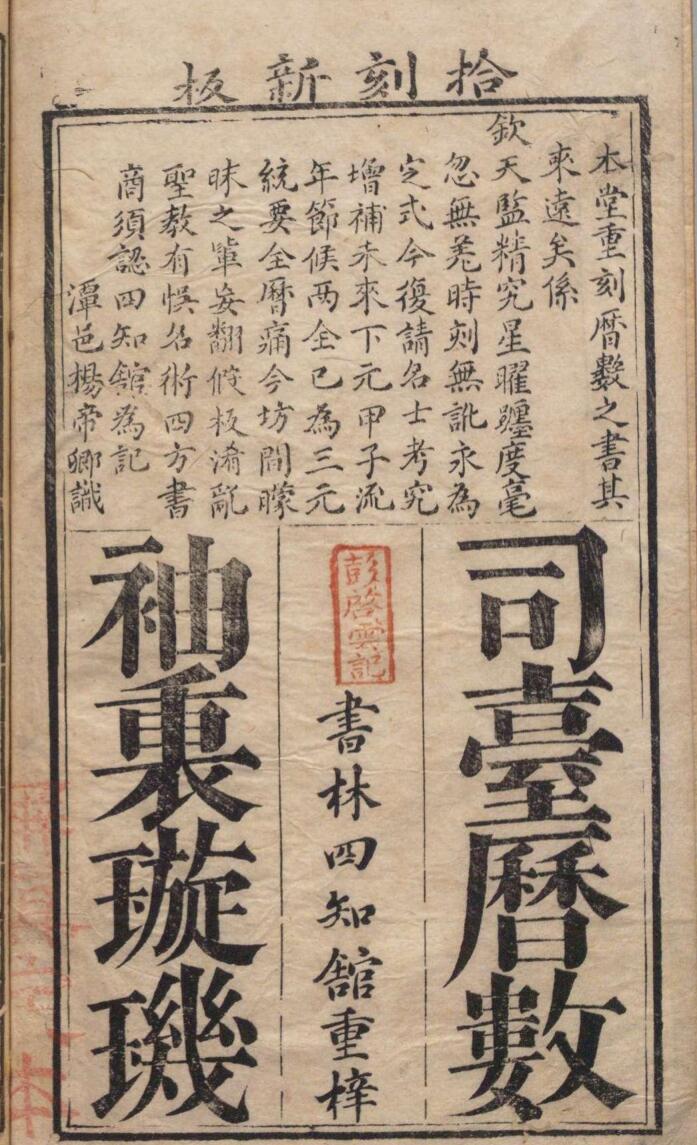 拾刻新板
本堂重刻曆數之書其
來遠矣係
欽天監精究星曜躔度毫
忽無差時刻無訛永為
定式今復請名士考究
增補未來下元甲子流
年節候两全已為三元
統要全曆痛今坊間矇
昧之輩妄翻假板淆亂
聖教有悞名術四方書
商須認四知舘為記
潭邑楊帝卿識
司臺曆數
彭啓雲記
書林四知舘重梓
袖裏璇璣